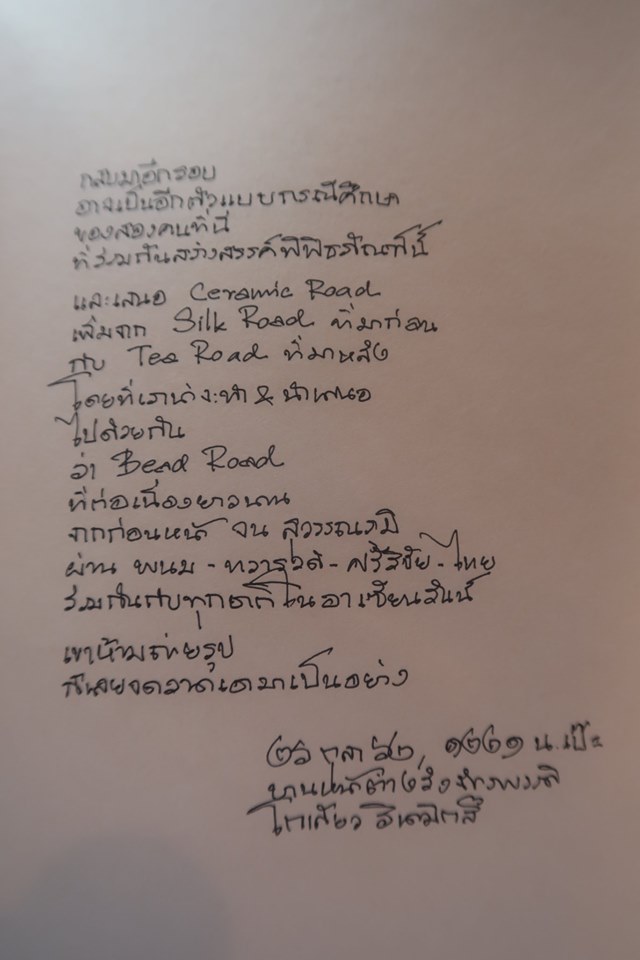 กลับมาอีกรอบ
อาจเป็นอีกตัวแบบกรณีศึกษา
ของสองคนที่นี่
ที่ร่วมกันสร้างสรรค์พิพิธภัณฑ์นี้
และเสนอ Ceramic Road
เพิ่มจาก Silk Road ที่มาก่อน
กับ Tea Road ที่มาหลัง
โดยที่เราน่าจะทำ & นำเสนอ
ไปด้วยกัน
ว่า Bead Road
ที่ต่อเนื่องยาวนาน
จากก่อนหน้า จน สุวรรณภูมิ
ผ่าน พนม - ทวารวดี - ศรีวิชัย - ไทย
ร่วมกันกับทุกชาติในอาเซียนวันนี้
เขาห้ามถ่ายรูป
ก็เลยจดวาดเอามาเป็นอย่าง
๒๖ ตุลา ๖๒, ๑๒๒๑ น.เป๊ะ